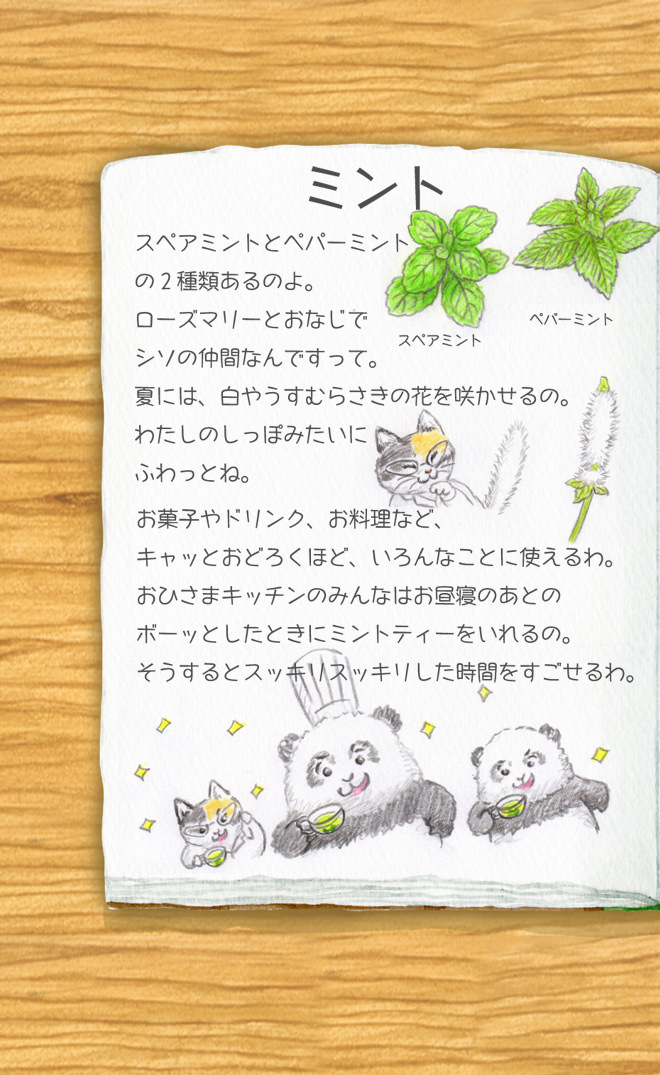 ミント
スペアミントとペパーミント
の２種類あるのよ。
ローズマリーとおなじで
シソの仲間なんですって。
スペアミント
ペパーミント
夏には、白やうすむらさきの花を咲かせるの。
わたしのしっぽみたいに
ふわっとね。
お菓子やドリンク、お料理など、
キャッとおどろくほど、いろんなことに使えるわ。
おひさまキッチンのみんなはお昼寝のあとの
ボーッとしたときにミントティーをいれるの。
そうするとスッキリスッキリした時間をすごせるわ。